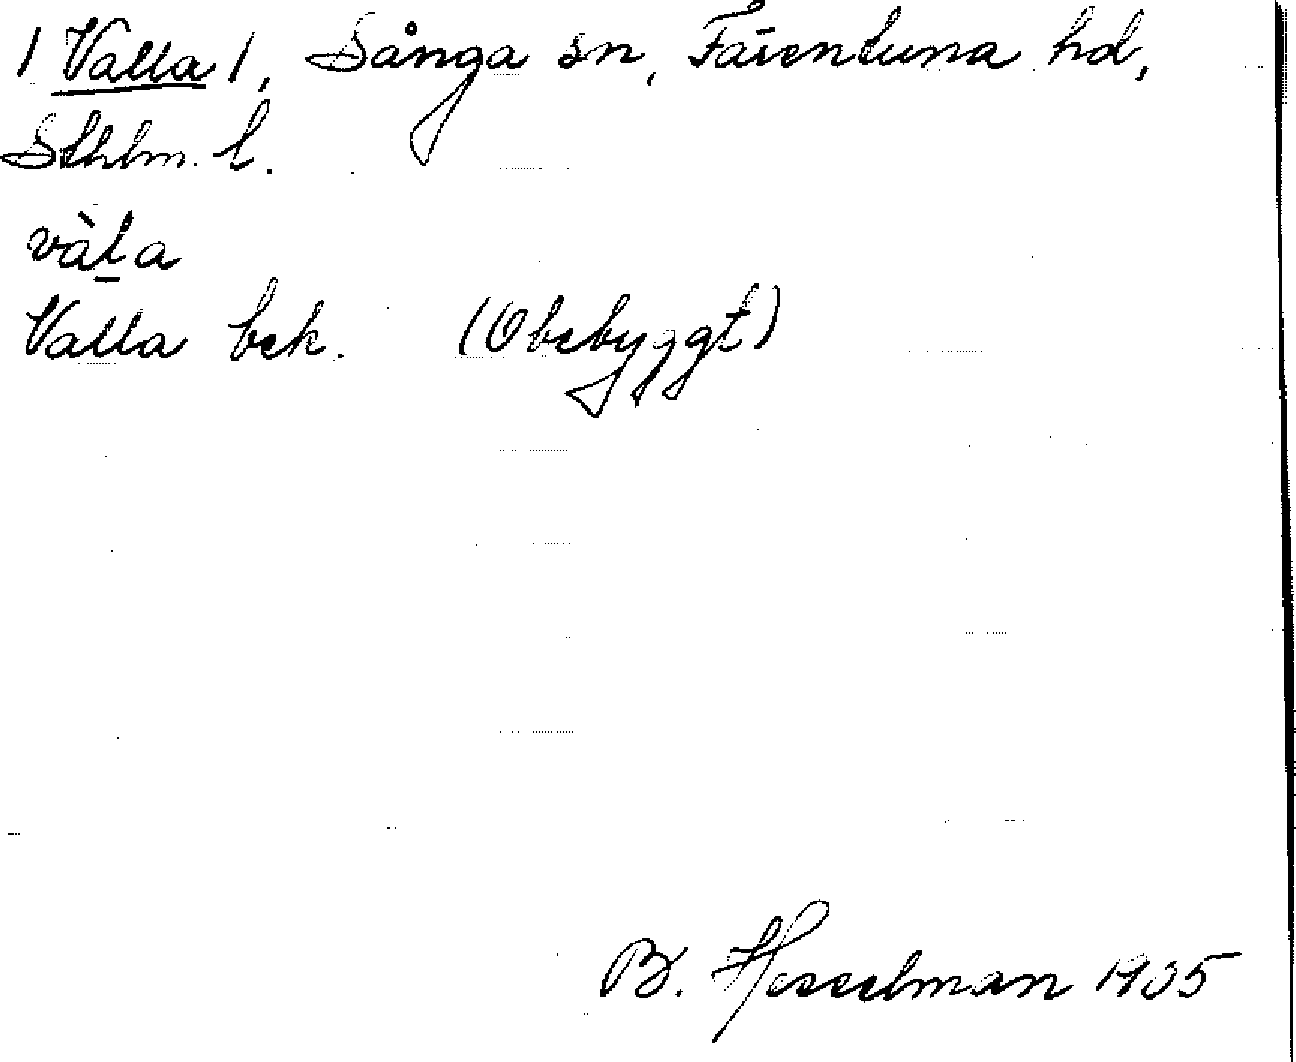 / Valla /, Sånga sn, Färentuna hd,
Sthlm. l.
vàl̲a
Valla bck. (Obebyggt)
B. Hesselman 1905